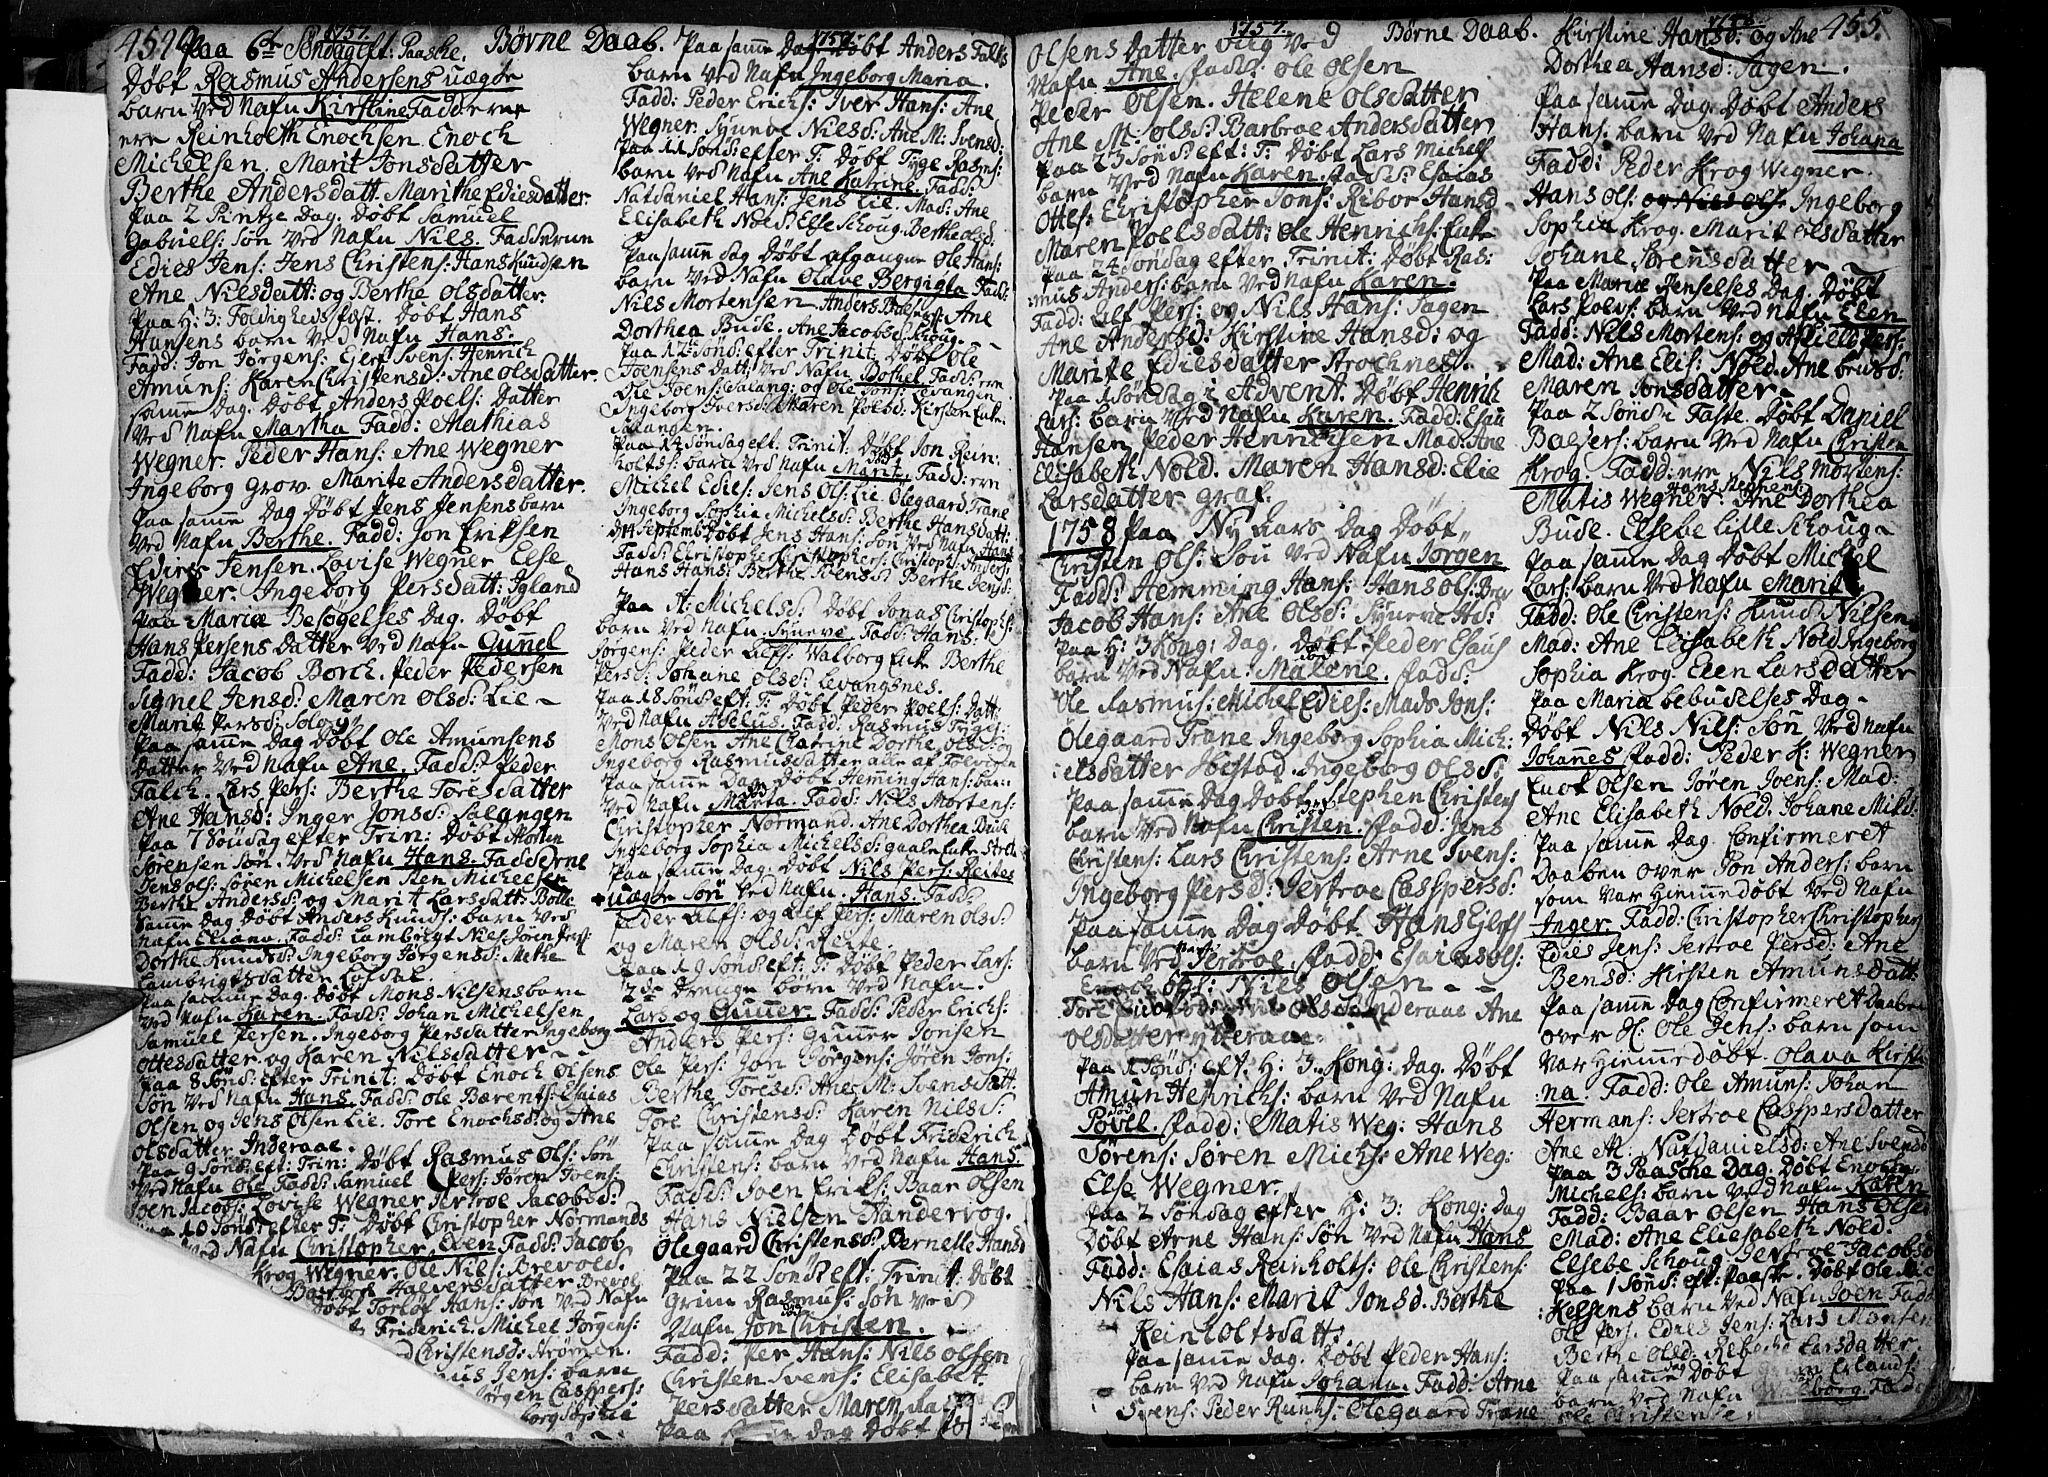 1757.
454 Paa 6te Søndag eft. Paaske. Børne Daab.
Døbt Rasmus Andersens uægte
barn ved Nafn Kirstine Fadderne
ere Reinholth Enochsen Enoch
Michelsen. Marit Jonsdatter
Berthe Andersdatt. Marithe Ediesdatter.
Paa 2 Pintze Dag. Døbt Samuel
Gabriels: Søn ved Nafn Nils. Fadderne
Edies Jens: Jens Christens: Hans Knudsen
Ane Nilsdatt: og Berthe Olsdatter.
Paa H: 3: Foldigheds fæst. Døbt Hans
Hansens barn ved Nafn Hans.
Fadd: Jon Jørgens: Ejert Svens: Henrich
Amuns: Karen Christensd: Ane Olsdatter.
samme Dag. Døbt Anders Poels: Datter
ved Nafn Martha Fadd: Mathias
Wegner. Peder Hans: Ane Wegner
Ingeborg Grov. Marite Andersdatter.
Paa samme Dag Døbt Jens Jensens barn
ved Nafn Berthe. Fadd: Jon Eriksen
Edies Jensen. Lovise Wegner Else
Wegner. Ingeborg Persdatt: Igland
Paa Mariæ Besøgelses Dag. Døbt
Hans Persens Datter ved Nafn Gunnel
Fadd: Jacob Borch. Peder Pedersen
Signel Jensd: Maren Olsd: Lie –
Marit Persd: Soløy
Paa samme Dag Døbt Ole Amunsens
Datter ved Nafn Ane. Fadd: Peder
Falch. Lars Pers: Berthe Toresdatter
Ane Hansd: Inger Jonsd: Salangen
Paa 7 Søndag efter Trin: Døbt Morten
Sørensen Søn. ved Nafn Hans. Fadderne
Jens Ols: Søren Michelsen Sten Michelsen
Berthe Andersd: og Marit Larsdatt: Bolle
Samme Dag Døbt Anders Knuds: barn ved
Nafn Eliana. Fadd: Lambrigt Nils: Jøren Pers:
Dorthe Knudsd: Ingeborg Jørgensd: Methe
Lambrigtsdatter
Paa samme Dag. Døbt Mons Nilsens barn
ved Nafn Karen. Fadd: Johan Michelsen
Samuel Persen. Ingeborg Persdatter Ingeborg
Ottesdatter og Karen Nilsdatter –
Paa 8 Sønd: efter Trinit: Døbt Enoch Olsens
Søn ved Nafn Hans. Fadd: Ole Bærents: Esaias
Olsen og Jens Olsen Lie. Tore Enochsd: og Ane
Olsdatter Inderaae.
Paa 9 Sønd: eft: Trin: Døbt Rasmus Ols: Søn
ved Nafn Ole Fadd: Samuel Pers: Jøren Joens:
Joen Jacobs: Lovise Wegner Jertroe Jacobsd:
10 Sønd: efter T: Døbt Christopher Normands
ved Nafn Christopher Even Fadd: Jacob
Krog Wegner. Ole Nils: Brevold.
Halversdatter Brevol
Døbt Torlof Hans: Søn ved Nafn
Friderich. Michel Jørgens:
Christensd: Aromen.
Jens: barn
Jørgen Caspers:
Sophia
1757.
Paa samme Dag Døbt Anders Falks
barn ved Nafn Ingeborg Maria.
Fadd: Peder Erichs: Iver Hans: Ane
Wegner. Synneve Nilsd: Ane M. Svensd:
Paa 11 Sønd: efter T: Døbt Tyge Rasms:
barn ved Nafn Ane Katrine. Fadd:
Natdaniel Hans: Jens Lie. Mad: Ane
Elisabeth Noed: Else Schoug. Berthe Olsd.
Paa samme Dag Døbt afgangne Ole Hans:
barn ved Nafn Olave Bergigta Fadd:
Nils Mortensen. Anders Ane
Dorthea Bude. Ane Jacobsd: Kroug. –
Paa 12te Sønd: efter Trinit: Døbt Ole
Joensens Datt: ved Nafn Bothel Fadd: ere
Ole Joens: Salang: og Ole Jons: Levangen
Ingeborg Iversd: Maren Poelsd: Kirsten Enke.
Salangen.
Paa 14 Søndag eft. Trinit: Døbt Jon Rein:
holts: barn ved Nafn Marit. Fadd: ere
Michel Edies: Jens Ols: Lie. Olegaard Trane
Ingeborg Sophia Michelsd: Berthe Hansdatt:
Septemb: Døbt Jens Hans: Søn ved Nafn Hans
Fadd: Christopher Christophers: Christoph: Anders:
Hans Hans: Berthe Joensd: Berthe Jensd:
Paa St: Michelsd: Døbt Jonas Christoph:
barn ved Nafn Syneve Fadd: Hans
Jørgens: Peder Lefs: Walborg Enke Berthe
Persd: Johane Olsd: Levangsnes.
Paa 18 Sønd: eft: T: Døbt Peder Poels: Datt:
ved Nafn Adelus. Fadd: Rasmus Tyges:
Mons Olsen Ane Chatrine Dorthe Olsd: og
Ingeborg Rasmusdatter alle af Foldvigen
Paa samme Dag Døbt Heming Hans: barn
ved Nafn Marta. Fadd: Nils Mortens:
Christopher Normand. Ane Dorthea Bude
Ingeborg Sophia Michelsd: gaale Enke
Paa samme Dag. Døbt Nils Pers: Reites
+ uægte Søn ved Nafn. Hans. Fadd:
Peder Lefs: og Lef Pers: Maren Olsd:
og Maren Olsd: Reite.
Paa 19 Sønd: eft: T: Døbt Peder Lars:
2de Drenge børn ved Nafn.
Lars og Gumer. Fadd: Peder Erichs:
Anders Pers: Gumer Jonsen
Ole Pers: Jon Jørgens: Jøren Jons:
Berthe Toresd: Ane M: Svensdatt:
Tore Christensd: Karen Nilsd:
Paa samme Dag Døbt Friderich
Christens: barn ved Nafn Hans:
Fadd: Joen Eriks: Baar Olsen
Hans Nielsen Sandervog.
Olegaard Christensd: Pernelle Hansd
Paa 22 Sønd: eft: Trinit: Døbt
Grim Rasmus: Søn ved
Nafn Jon Christen.
Fadd: Per Hans: Nils Olsen
Christen Svens: Elisabet
Persdatter Maren
Paa samme Dag Døbt
1757.
Olsens Datter ved
Nafn Ane. Fadd: Ole Olsen
Peder Olsen. Helene Olsdatter
Ane M: Olsd: Barbroe Andersdatter
Paa 23 Sønd: eft: T: Døbt Lars Michels
barn ved Nafn Karen. Fadd: Esaias
Ottes: Christopher Jons: Ribor Hansd:
Maren Poelsdatt: Ole Henrichs: Enke
Paa 24 Søndag efter Trinit: Døbt Ras:
mus Anders: barn ved Nafn Karen.
Fadd: Lef Pers: og Nils Hans: Sagen
Ane Andersd: Kirstine Hansd: og
Marite Ediesdatter Strochnes.
Paa 1 Søndag i Advent. Døbt Henrich
Lars: barn ved Nafn Karen. Fadd: Esau
Hansen Peder Henrichsen Mad: Ane
Elisabeth Nold. Maren Hansd: Elie
Larsdatter Graf.
1758 Paa Ny Aars Dag Døbt
Christen Ols: Søn ved Nafn Jørgen
Fadd: Hemming Hans: Hans Ols:
Jacob Hans: Ane Olsd: Syneve
Paa H: 3 Kong: Dag. Døbt Peder Esaus
barn ved Nafn: Malene. Fadd:
Ole Rasmus: Michel Edies: Mads Jons:
Olegaard Trane Ingeborg Sophia Mich:
elsdatter Ingeborg Olsd:
Paa samme Dag Døbt Stephen Christens
barn ved Nafn Christen. Fadd: Jens
Christens: Lars Christens: Arne Svens:
Ingeborg Persd: Jertroe Casspersd:
Paa samme Dag Døbt Hans Ejerts
barn ved Nafn Jertroe. Fadd: Esaias Ols:
Enoch Ols: Nils Olsen – –
Ane
Olsdatter
Paa 1 Sønd: eft: H: 3. Kong: Dag. Døbt
Amun Henrichs: barn ved Nafn
Povel. Fadd: Matis Weg: Hans
Sørens: Søren Mich: Ane Weg:
Else Wegner.
Paa 2 Søndag efter H: 3: Kong: Dag
Døbt Arne Hans: Søn ved Nafn Hans
Fadd: Esaias Reinholts: Ole Christens:
Nils Hans: Marit Jonsd. Berthe
Reinholtsdatt:
Paa samme Dag. Døbt Peder Hans:
barn ved Nafn Johana. Fadd: Arne
Svens: Peder Olegaard Trane
Børne Daab. 1758. 455.
Kirstine Hansd: og Ane
Dorthea Hansd: Sagen.
Paa samme Dag. Døbt Anders
Hans: barn ved Nafn Johana
Fadd: Peder Krog Wegner.
Hans Ols: og Nils Ols: Ingeborg
Sophia Krog. Marit Olsdatter
Johane Sørensdatter
Paa Mariæ Renselses Dag. Døbt
Lars Poels: barn ved Nafn Elen
Fadd: Nils Mortens: og
Mad: Ane Elis: Nold. Ane Bensd:
Maren Jonsdatter –
Paa 2 Sønd: i Faste. Døbt Daniel
Balsers: barn ved Nafn Christen
Krog. Fadd: ere Nils Mortens:
Hans
Matis Wegner Ane Dorthea
Bude. Elsebe Lille Schoug –
Paa samme Dag Døbt Michel
Lars: barn ved Nafn Marit
Fadd: Ole Christens: Knud Nilsen
Mad: Ane Elisabeth Nold Ingeborg
Sophia Krog. Elen Larsdatter
Paa Mariæ bebudelses Dag –
Døbt Nils Nils: Søn ved Nafn
Johannes. Fadd: Peder K: Wegner
Olsen Jøren Joens: Mad:
Ane Elisabeth Nold. Johane
Paa samme Dag. Confirmeret
Daaben over Jon Anders: barn
som var Hiemmedøbt ved Nafn
Inger. Fadd: Christopher Christophers
Edies Jens: Jertroe Persd: Ane
Bensd: Kirsten Amunsdatt:
Paa samme Dag Confirmeret Daaben
over H: Ole Jens: barn som
var Hiemmedøbt. Olava Kirsti
:na. Fadd: Ole Amuns: Johan
Hermans: Jertroe Casspersdatter
Ane M. Natdanielsd: Ane Svensd
Paa 3 Paasche Dag. Døbt Enoch
Michels: barn ved Nafn Karen
Fadd: Baar Olsen Hans Olsen
Mad: Ane Eliesabeth Nold.
Elsebe Schoug Jertroe Jacobsd
Paa 1 Sønd: eft: Paaske. Døbt Ole Mic
:helsens barn ved Nafn Joen Fadd
Ole Pers. Edies Jens: Lars Monsen
Berthe Olsd: Rebecha Larsdatter.
Paa samme Dag Døbt Erlands:
barn ved Nafn Fadd
Ole Christens